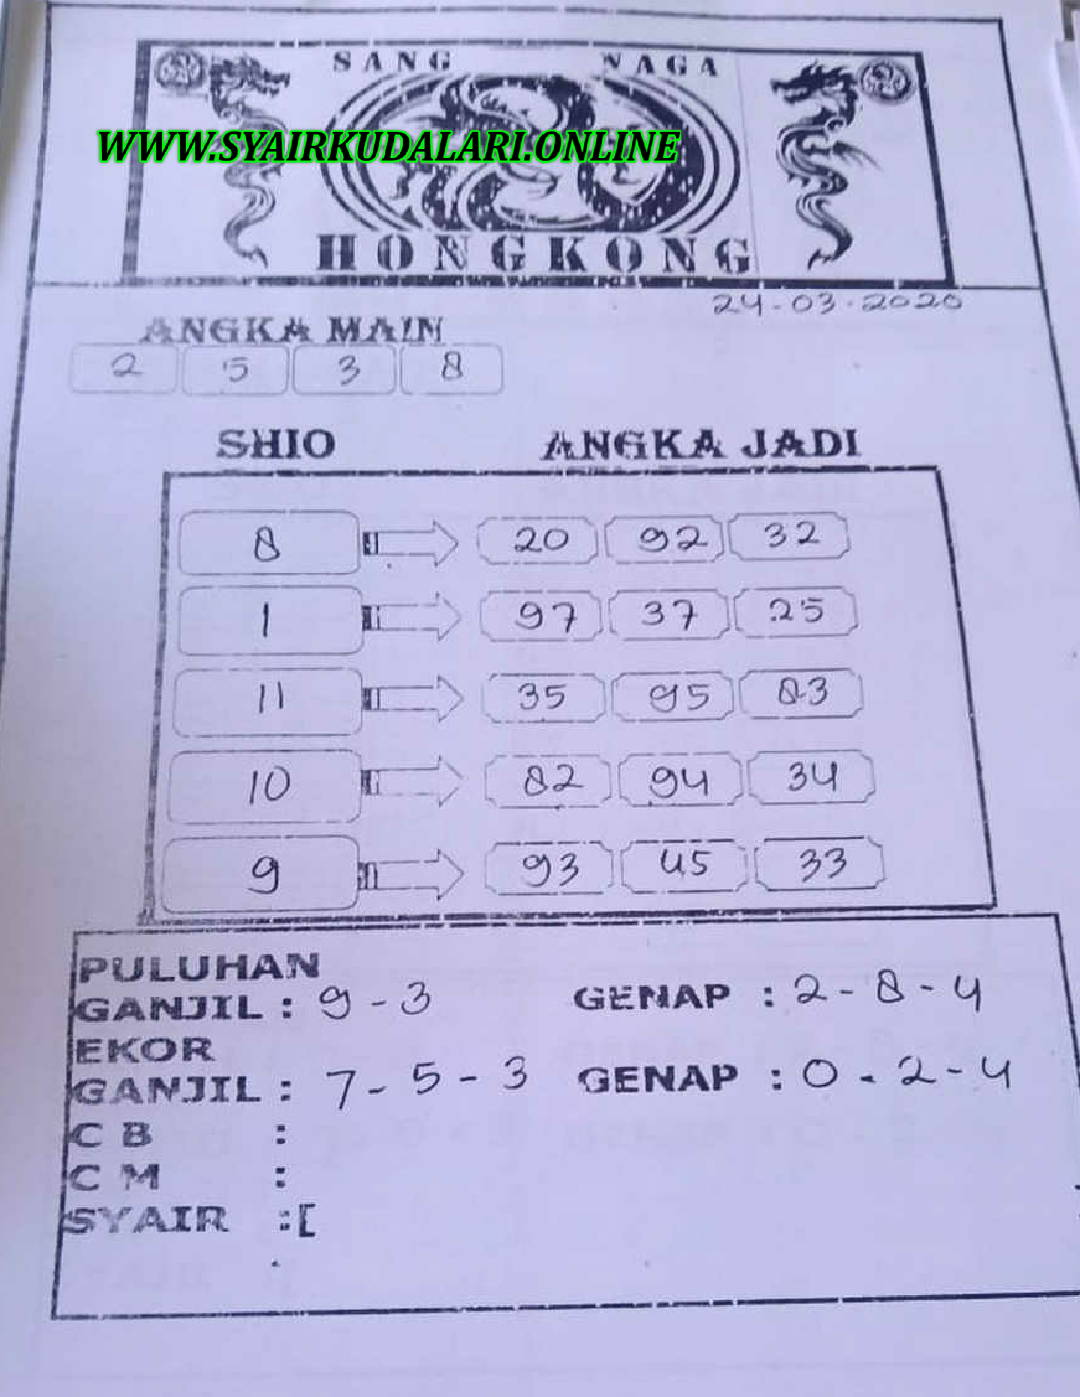 SANG NAGA
WWW.SYAIRKUDALARI.ONLINE
HONGKONG
24-03-2020
ANGKA MAIN
2 5 3 8
SHIO ANGKA JADI
8 20 92 32
1 97 37 25
11 35 95 83
10 82 94 34
9 93 45 33
PULUHAN
GANJIL : 9 - 3 GENAP : 2 - 8 - 4
EKOR
GANJIL : 7 - 5 - 3 GENAP : 0 - 2 - 4
C B :
C M :
SYAIR :[